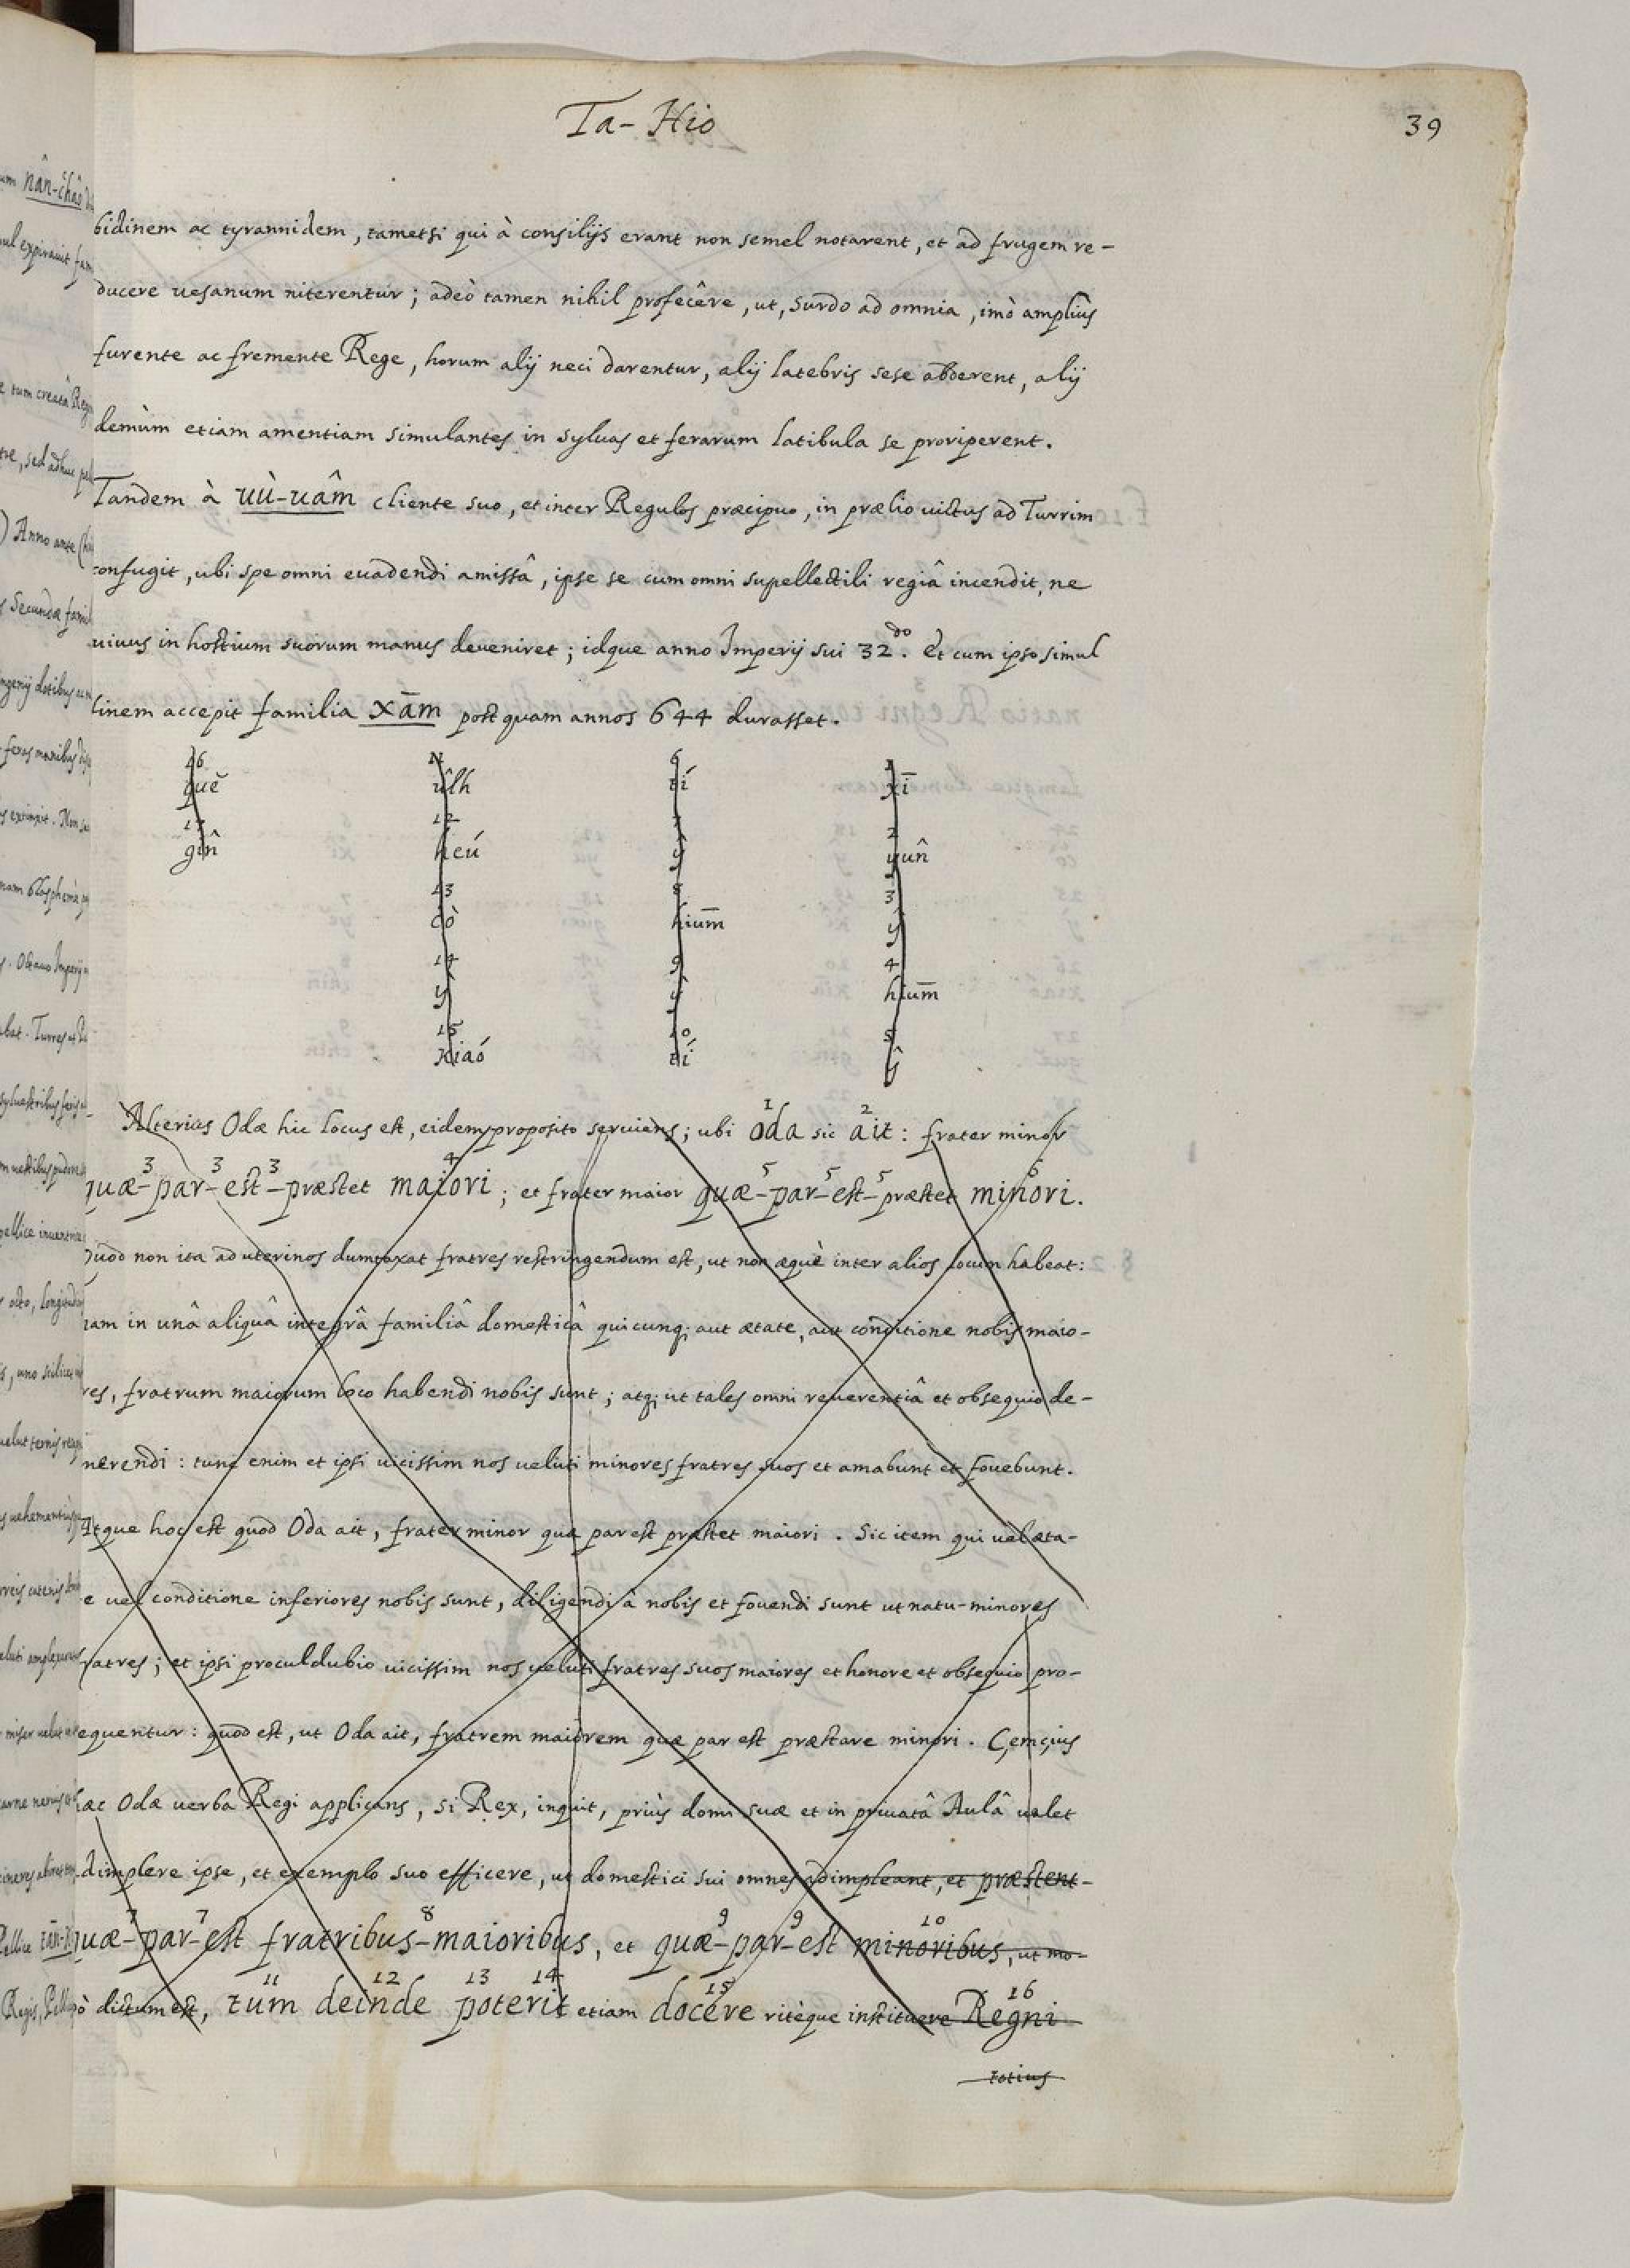 Ta-Hio
39
bidinem ac tyrannidem, tametsi qui à consilijs erant non semel notarent, et ad frugem re-
ducere uesanum niterentur; adeò tamen nihil profecêre, ut, surdo ad omnia, imò ampliùs
furente ac fremente Rege, horum alij neci darentur, alij latebris sese abderent, alij
demùm etiam amentiam simulantes in syluas et ferarum latibula se proriperent.
Tandem à uù-uâm cliente suo, et inter Regulos præcipuo, in prælio uictus ad Turrim
confugit, ubi spe omni euadendi amissâ, ipse se cum omni supellectili regiâ incendit, ne
uiuus in hostium suorum manus deueniret; idque anno Imperij sui 32.do Et cum ipso simul
finem accepit familia xām postquam annos 644 durasset.
16 11 6 1
quĕ ûlh tí xī
17 12 7 2
gîn heú ŷ yuñ
13 8 3
cò hiūm ŷ
14 9 4
ŷ ŷ hiūm
15 10 5
kiaó tí ŷ
1 2
Alterius Odæ hic locus est, eidem proposito seruiens; ubi Oda sic ait: frater minor
3 3 3 4 5 5 5 6
quæ-par-est-præstet maiori; et frater maior quæ-par-est-præstet minori.
Quod non ita ad uterinos dumtaxat fratres restringendum est, ut non æquè inter alios locum habeat:
nam in unâ aliquâ integrâ familiâ domesticâ quicunq; aut ætate, aut conditione nobis maio-
res, fratrum maiorum loco habendi nobis sunt; atq; ut tales omni reuerentiâ et obsequio de-
merendi: tunc enim et ipsi uicissim nos ueluti minores fratres suos et amabunt et fouebunt.
Atque hoc est quod Oda ait, frater minor quæ par est præstet maiori. Sic item qui uel æta-
e uel conditione inferiores nobis sunt, diligendi à nobis et fouendi sunt ut natu-minores
fratres; et ipsi proculdubio uicissim nos ueluti fratres suos maiores et honore et obsequio pro-
equentur: quod est, ut Oda ait, fratrem maiorem quæ par est præstare minori. Çemçius
hæc Odæ uerba Regi applicans, si Rex, inquit, priùs domi suæ et in priuatâ Aulâ ualet
adimplere ipse, et exemplo suo efficere, ut domestici sui omnes adimpleant, et præstent-
7 7 8 9 9 10
quæ-par-est fratribus-maioribus, et quæ-par-est minoribus, ut mo-
11 12 13 14 15 16
dò dictum est, tum deinde poterit etiam docere ritèque instituere Regni
totius